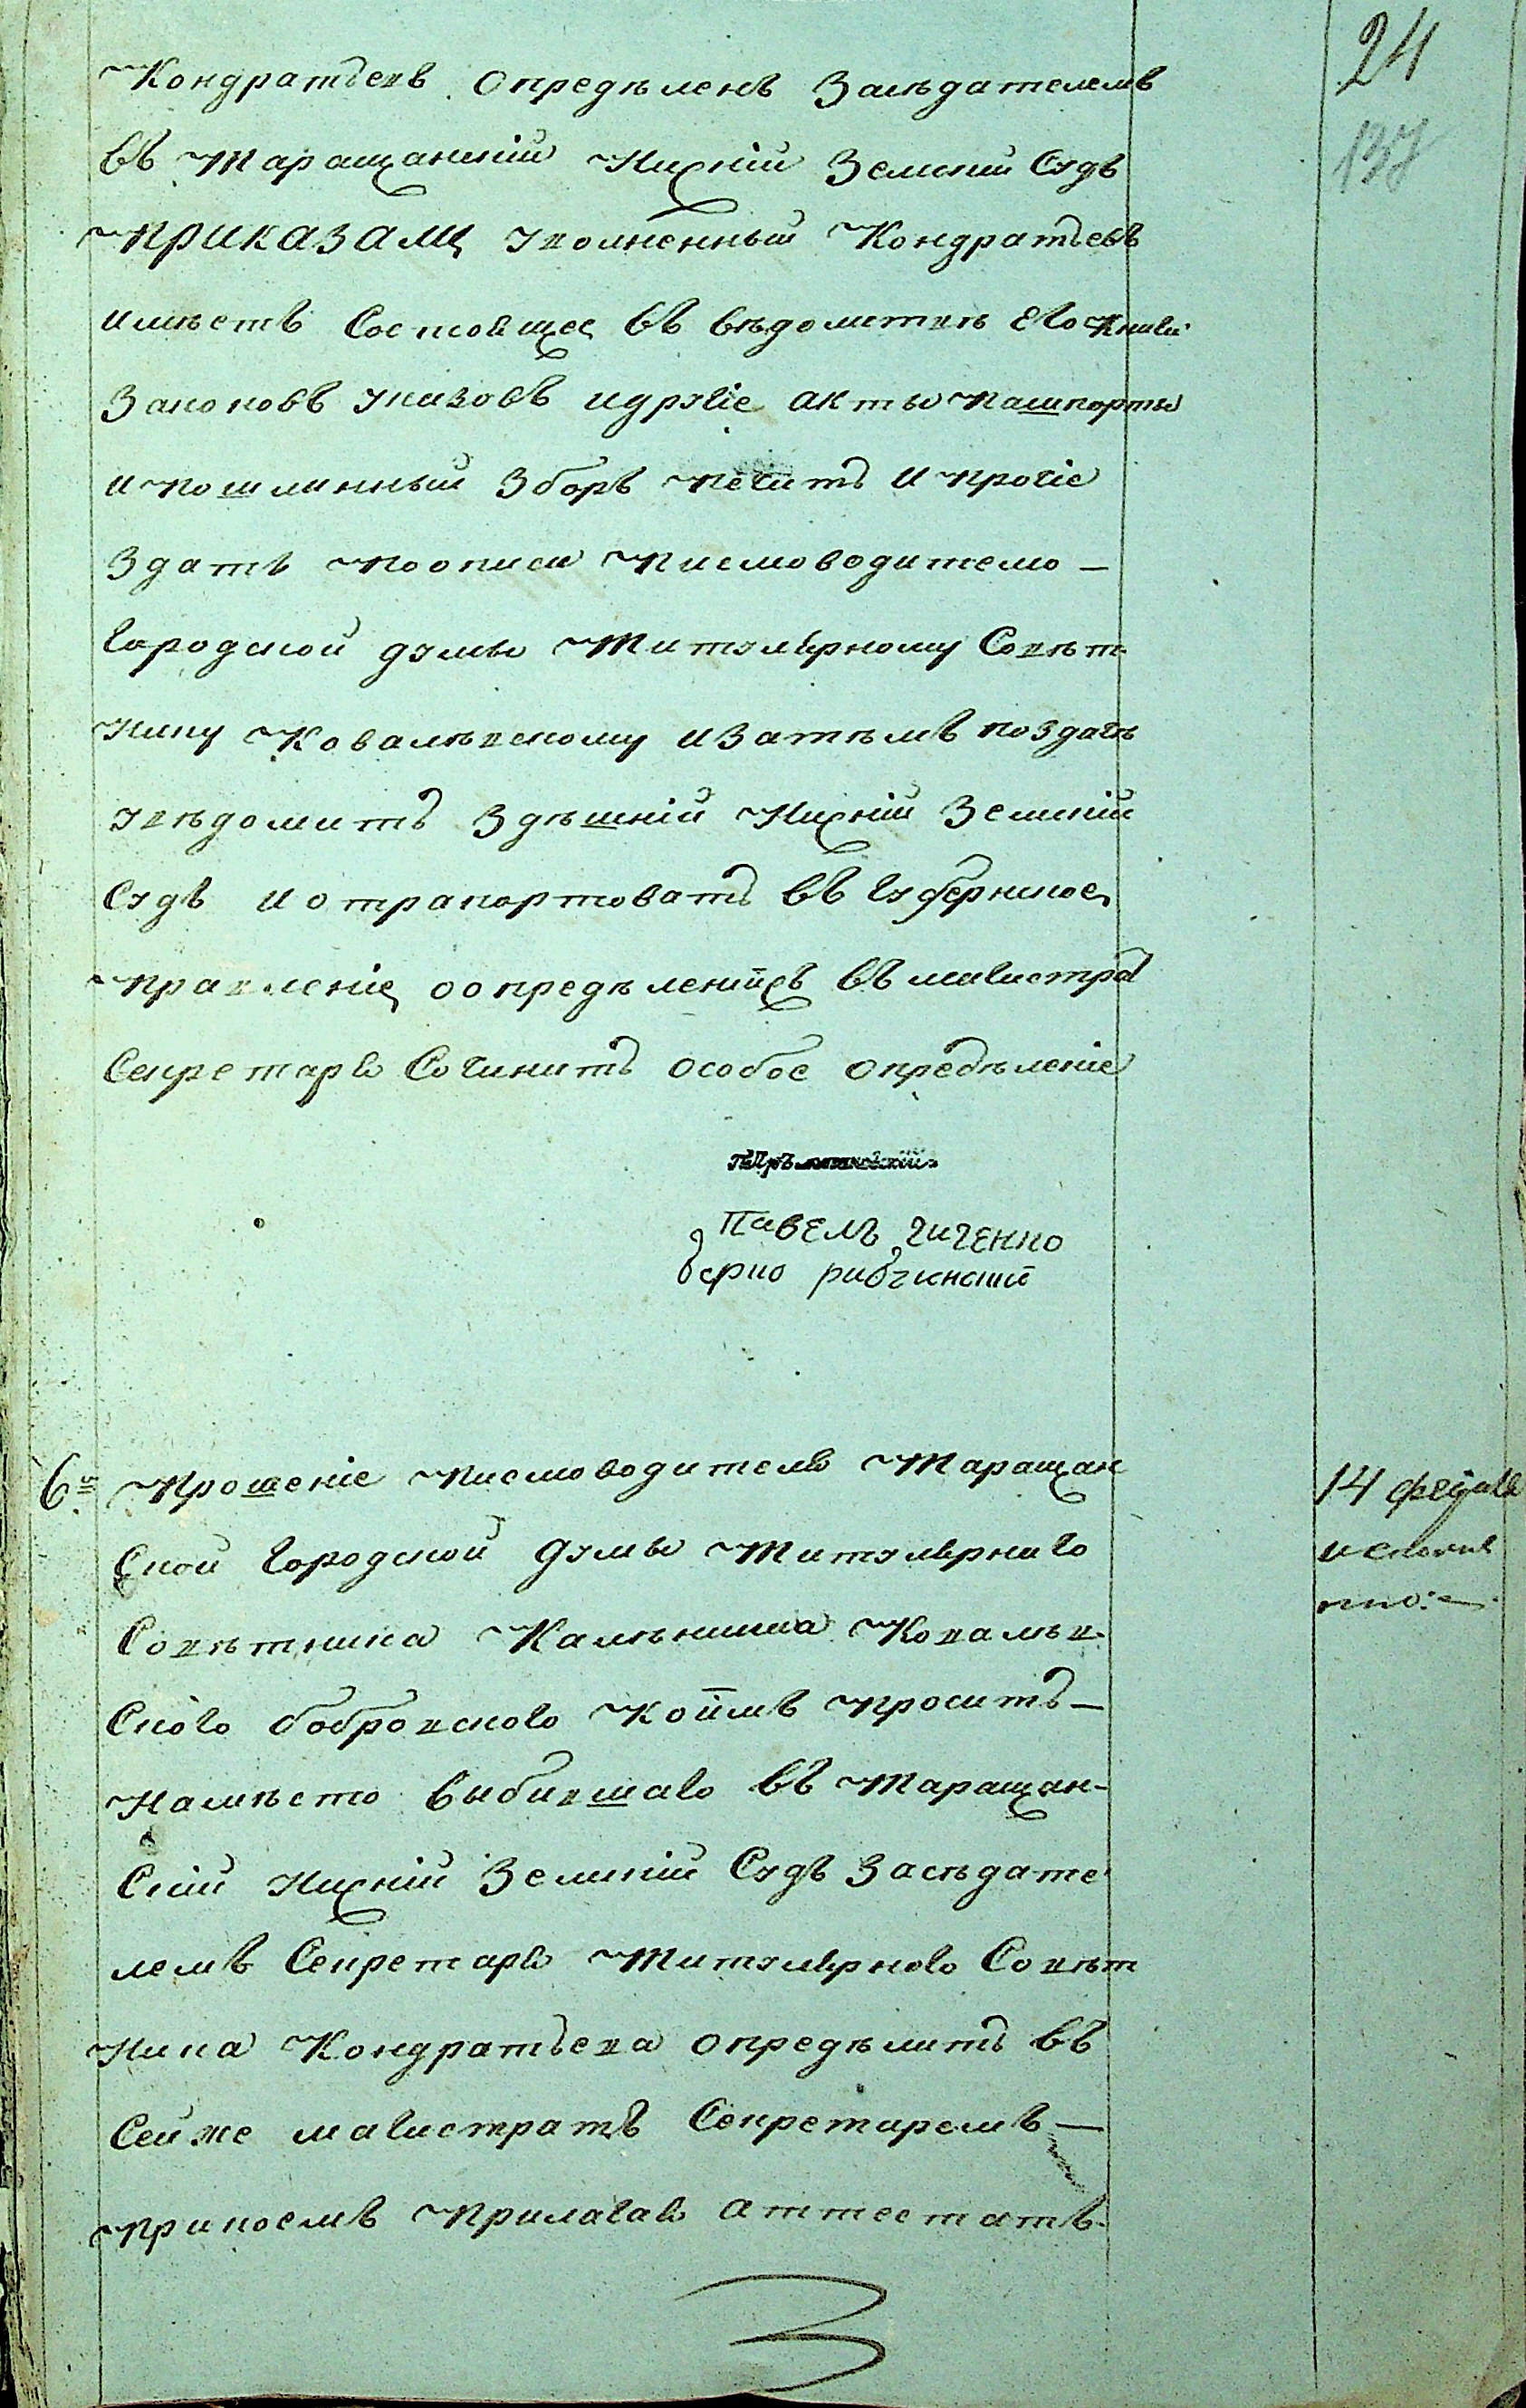 24
137
Кондратьевъ опредѣленъ Засѣдателемъ
въ Таращанскій Нижній Земскій Судъ
ПРИКАЗАЛИ уволненный Кондратьевъ
имѣетъ Состоящее въ вѣдомствѣ Его книги
Законовъ указовъ идругіе акты пашпорты
ипошлинный Зборъ печить и прочіе
Здать поописи писмоводителю —
Городской думы Титулярному Совѣт
нику Ковалѣвскому изатѣмъ поздачѣ
увѣдомить Здѣшній Нижній Земскій
Судъ и отрапортовать въ Губернское
правленіе оопредѣленіижъ въ магистра
Секретаря Сочинить особое опредѣленіе
Павелъ Чиченко
6й
Прошеніе писмоводителя Таращан
ской Городской думы Титулярнаго
Совѣтника Ковалѣв-
ского бобровского коимъ проситъ —
Намѣсто выбившаго въ Таращан-
скій Нижній Земскій Судъ Засѣдате
лемъ Секретаря Титулярного Совѣт
ника Кондратьева опредѣлить въ
Сей же магистратъ Секретаремъ —
припоемъ прилагая аттестатъ.
14